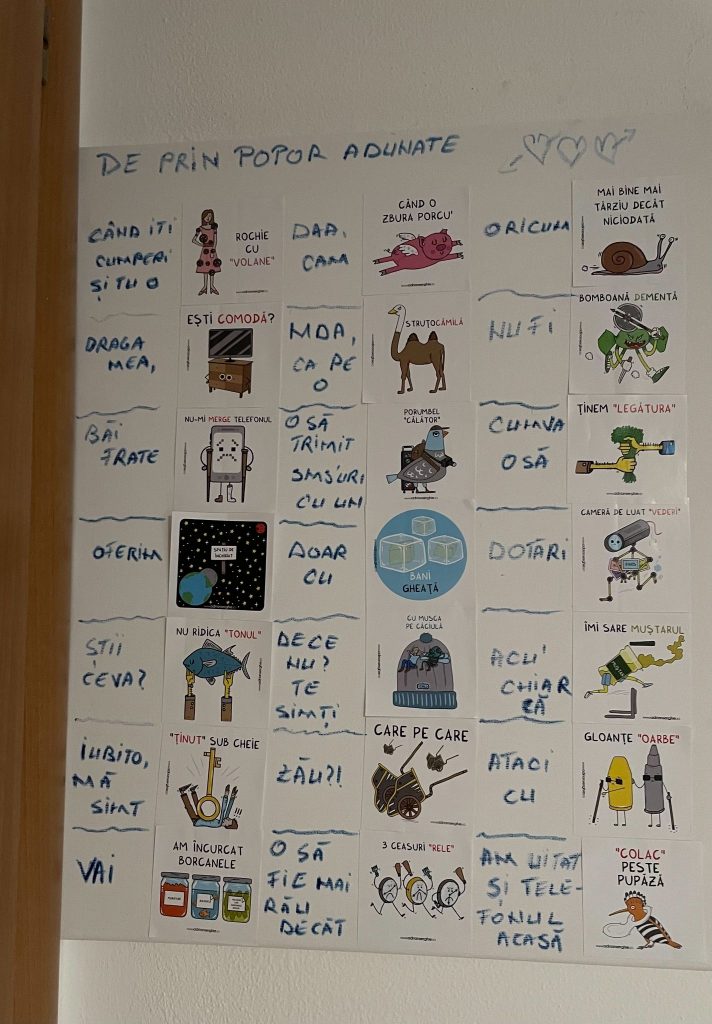 DE PRIN POPOR ADUNATE
CÂND ÎȚI
CUMPERI
ȘI TU O
ROCHIE
CU
"VOLANE"
DAA,
CAM
CÂND O
ZBURA PORCU'
ORICUM
MAI BINE MAI
TÂRZIU DECÂT
NICIODATĂ
DRAGA
MEA,
EȘTI COMODĂ?
MDA,
CA PE
O
STRUȚOCĂMILĂ
NU FI
BOMBOANĂ DEMENTĂ
BĂI
FRATE
NU-MI MERGE TELEFONUL
O SĂ
TRIMIT
SMS'URI
CU UN
PORUMBEL
"CĂLĂTOR"
CUMVA
O SĂ
ȚINEM "LEGĂTURA"
OFERIM
SPAȚIU DE
ÎNCHIRIAT
DOAR
CU
BANI
GHEAȚĂ
DOTARI
CAMERĂ DE LUAT "VEDERI"
ȘTII
CEVA?
NU RIDICA "TONUL"
DECE
NU?
TE
SIMȚI
CU MUSCA
PE CĂCIULĂ
ACU'
CHIAR
CĂ
ÎMI SARE MUȘTARUL
IUBITO,
MĂ
SIMT
"ȚINUT" SUB CHEIE
ZĂU?!
CARE PE CARE
ATACI
CU
GLOANȚE "OARBE"
VAI
AM ÎNCURCAT
BORCANELE
O SĂ
FIE MAI
RĂU
DECÂT
3 CEASURI "RELE"
AM UITAT
ȘI TELE-
FONUL
ACASĂ
"COLAC"
PESTE
PUPĂZĂ